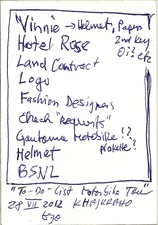 "Vinnie → Helmet, Paper
2nd key
Hotel Rose
Land Contract
Logo
Fashion Designers
Check "
Gautama Motorbike !?
Helmet
BSNL
"To-Do-List Motorbike
28 VII 2012 KHAJURAHO